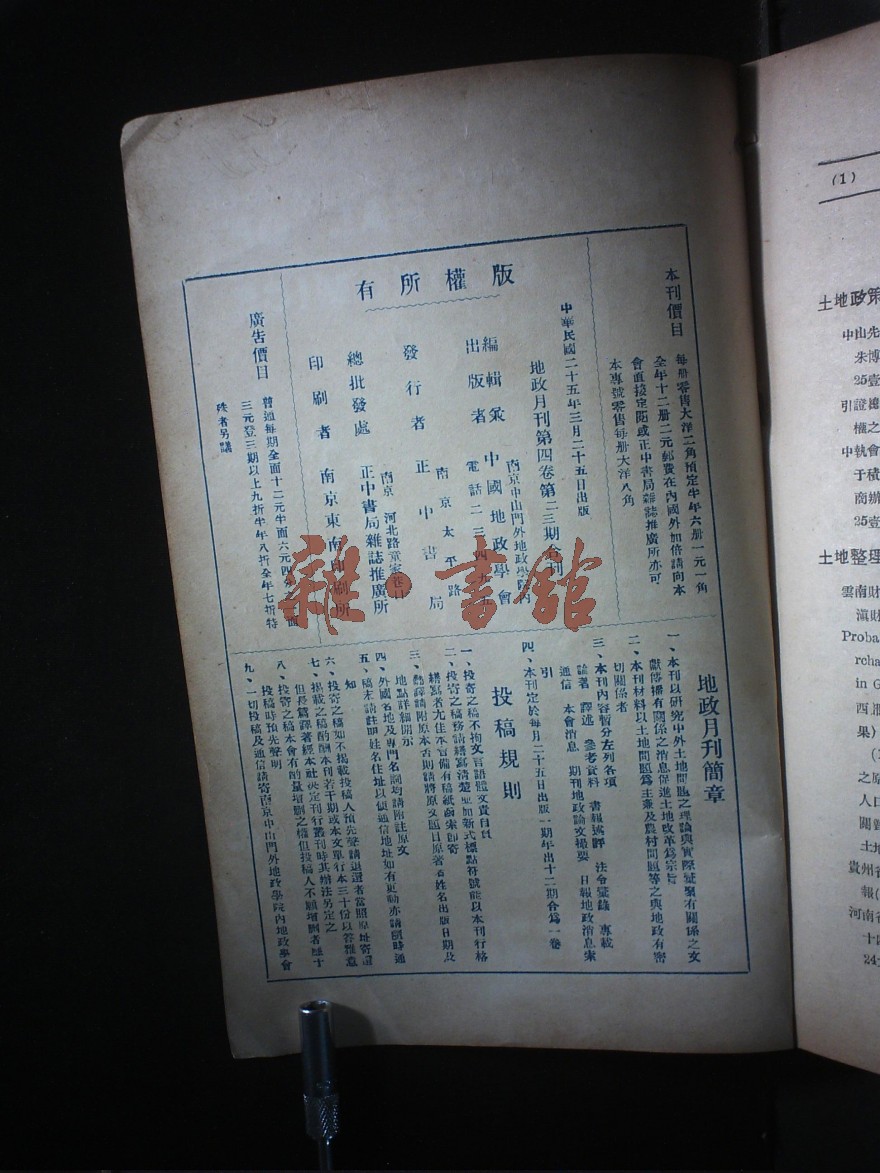 本刊價目
每册零售大洋二角預定半年六册一元一角
全年十二册二元郵費在內國外加倍請向本
會直接定閱或正中書局雜誌推廣所亦可
本專號零售每册大洋八角
版權所有
中華民國二十五年三月二十五日出版
地政月刊第四卷第二三期合刊
編輯兼
出版者
中國地政學會
南京中山門外地政學院內
電話二三四九五
發行者
正中書局
南京太平路
總批發處
正中書局雜誌推廣所
南京 河北路童家巷口
印刷者
南京東南印刷所
廣告價目
普通每期全面十二元半面六元四分一面
三元登三期以上九折半年八折全年七折特
殊者另議
地政月刊簡章
一、本刊以研究中外土地問題之理論與實際蒐聚有關係之文
獻傳播有關係之消息促進土地改革為宗旨
二、本刊材料以土地問題為主兼及農村問題等之與地政有密
切關係者
三、本刊內容暫分左列各項
論著 譯述 參考資料 書報述評 法令彙錄 專載
通信 本會消息 期刊地政論文撮要 日報地政消息索
引
四、本刊定於每月二十五日出版一期年出十二期合為一卷
投稿規則
一、投寄之稿不拘文言語體文責自負
二、投寄之稿務請繕寫清楚並加新式標點符號能以本刊行格
繕寫者尤佳本會備有稿紙函索即寄
三、翻譯請附原本否則請將原文題目原著者姓名出版日期及
地點詳細開示
四、外國名地及專門名詞均請附註原文
五、稿末請註明姓名住址以便通信地址如有更動亦請隨時通
知
六、投寄之稿如不揭載投稿人預先聲請退還者當照原址寄還
七、揭載之稿酌酬本刊若干期或本文單行本三十份以答雅意
但長篇譯著經本社決定刊行叢刊時其辦法另定之
八、投寄之稿本會有酌量增删之權但投稿人不願增删者應于
投稿時預先聲明
九、一切投稿及通信請寄南京中山門外地政學院內地政學會
雜·書館
(1)
土地政策
中山先
朱博
25壹
引證總
權之
中執會
于積
商辦
25壹
土地整理
雲南財
滇財
Proba
rcha
in G
西
果)
(2
之原
人口
關
土地
貴州省
報(
河南省
十
24